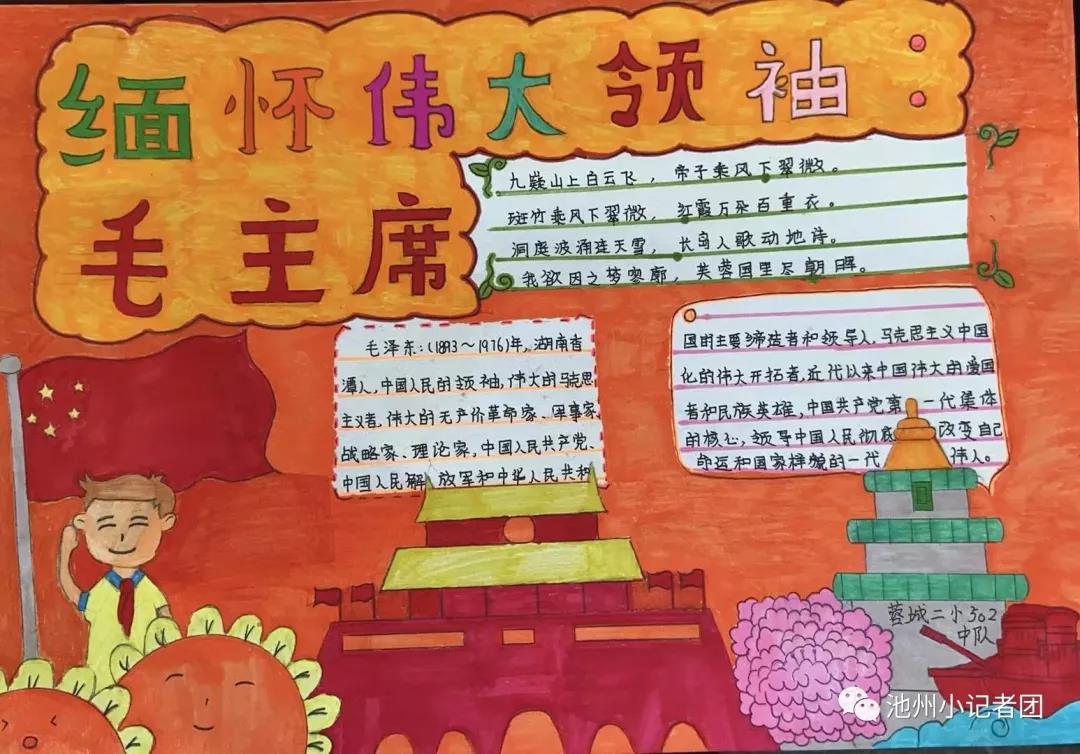 缅怀伟大领袖：
毛主席
九嶷山上白云飞，帝子乘风下翠微。
斑竹乘风下翠微，红霞万朵百重衣。
洞庭波涌连天雪，长岛人歌动地诗。
我欲因之梦寥廓，芙蓉国里尽朝晖。
毛泽东：(1893～1976)年，湖南省
潭人，中国人民的领袖，伟大的马克思
主义者，伟大的无产价革命家、军事家
战略家、理论家，中国人民共产党、
中国人民解放军和中华人民共和
国的主要缔造者和领导人，马克思主义中国
化的伟大开拓者，近代以来中国伟大的爱国
者和民族英雄，中国共产党第一代集体
的核心，领导中国人民彻底改变自己
命运和国家样貌的一代伟人。
蓉城二小502
中队
池州小记者团